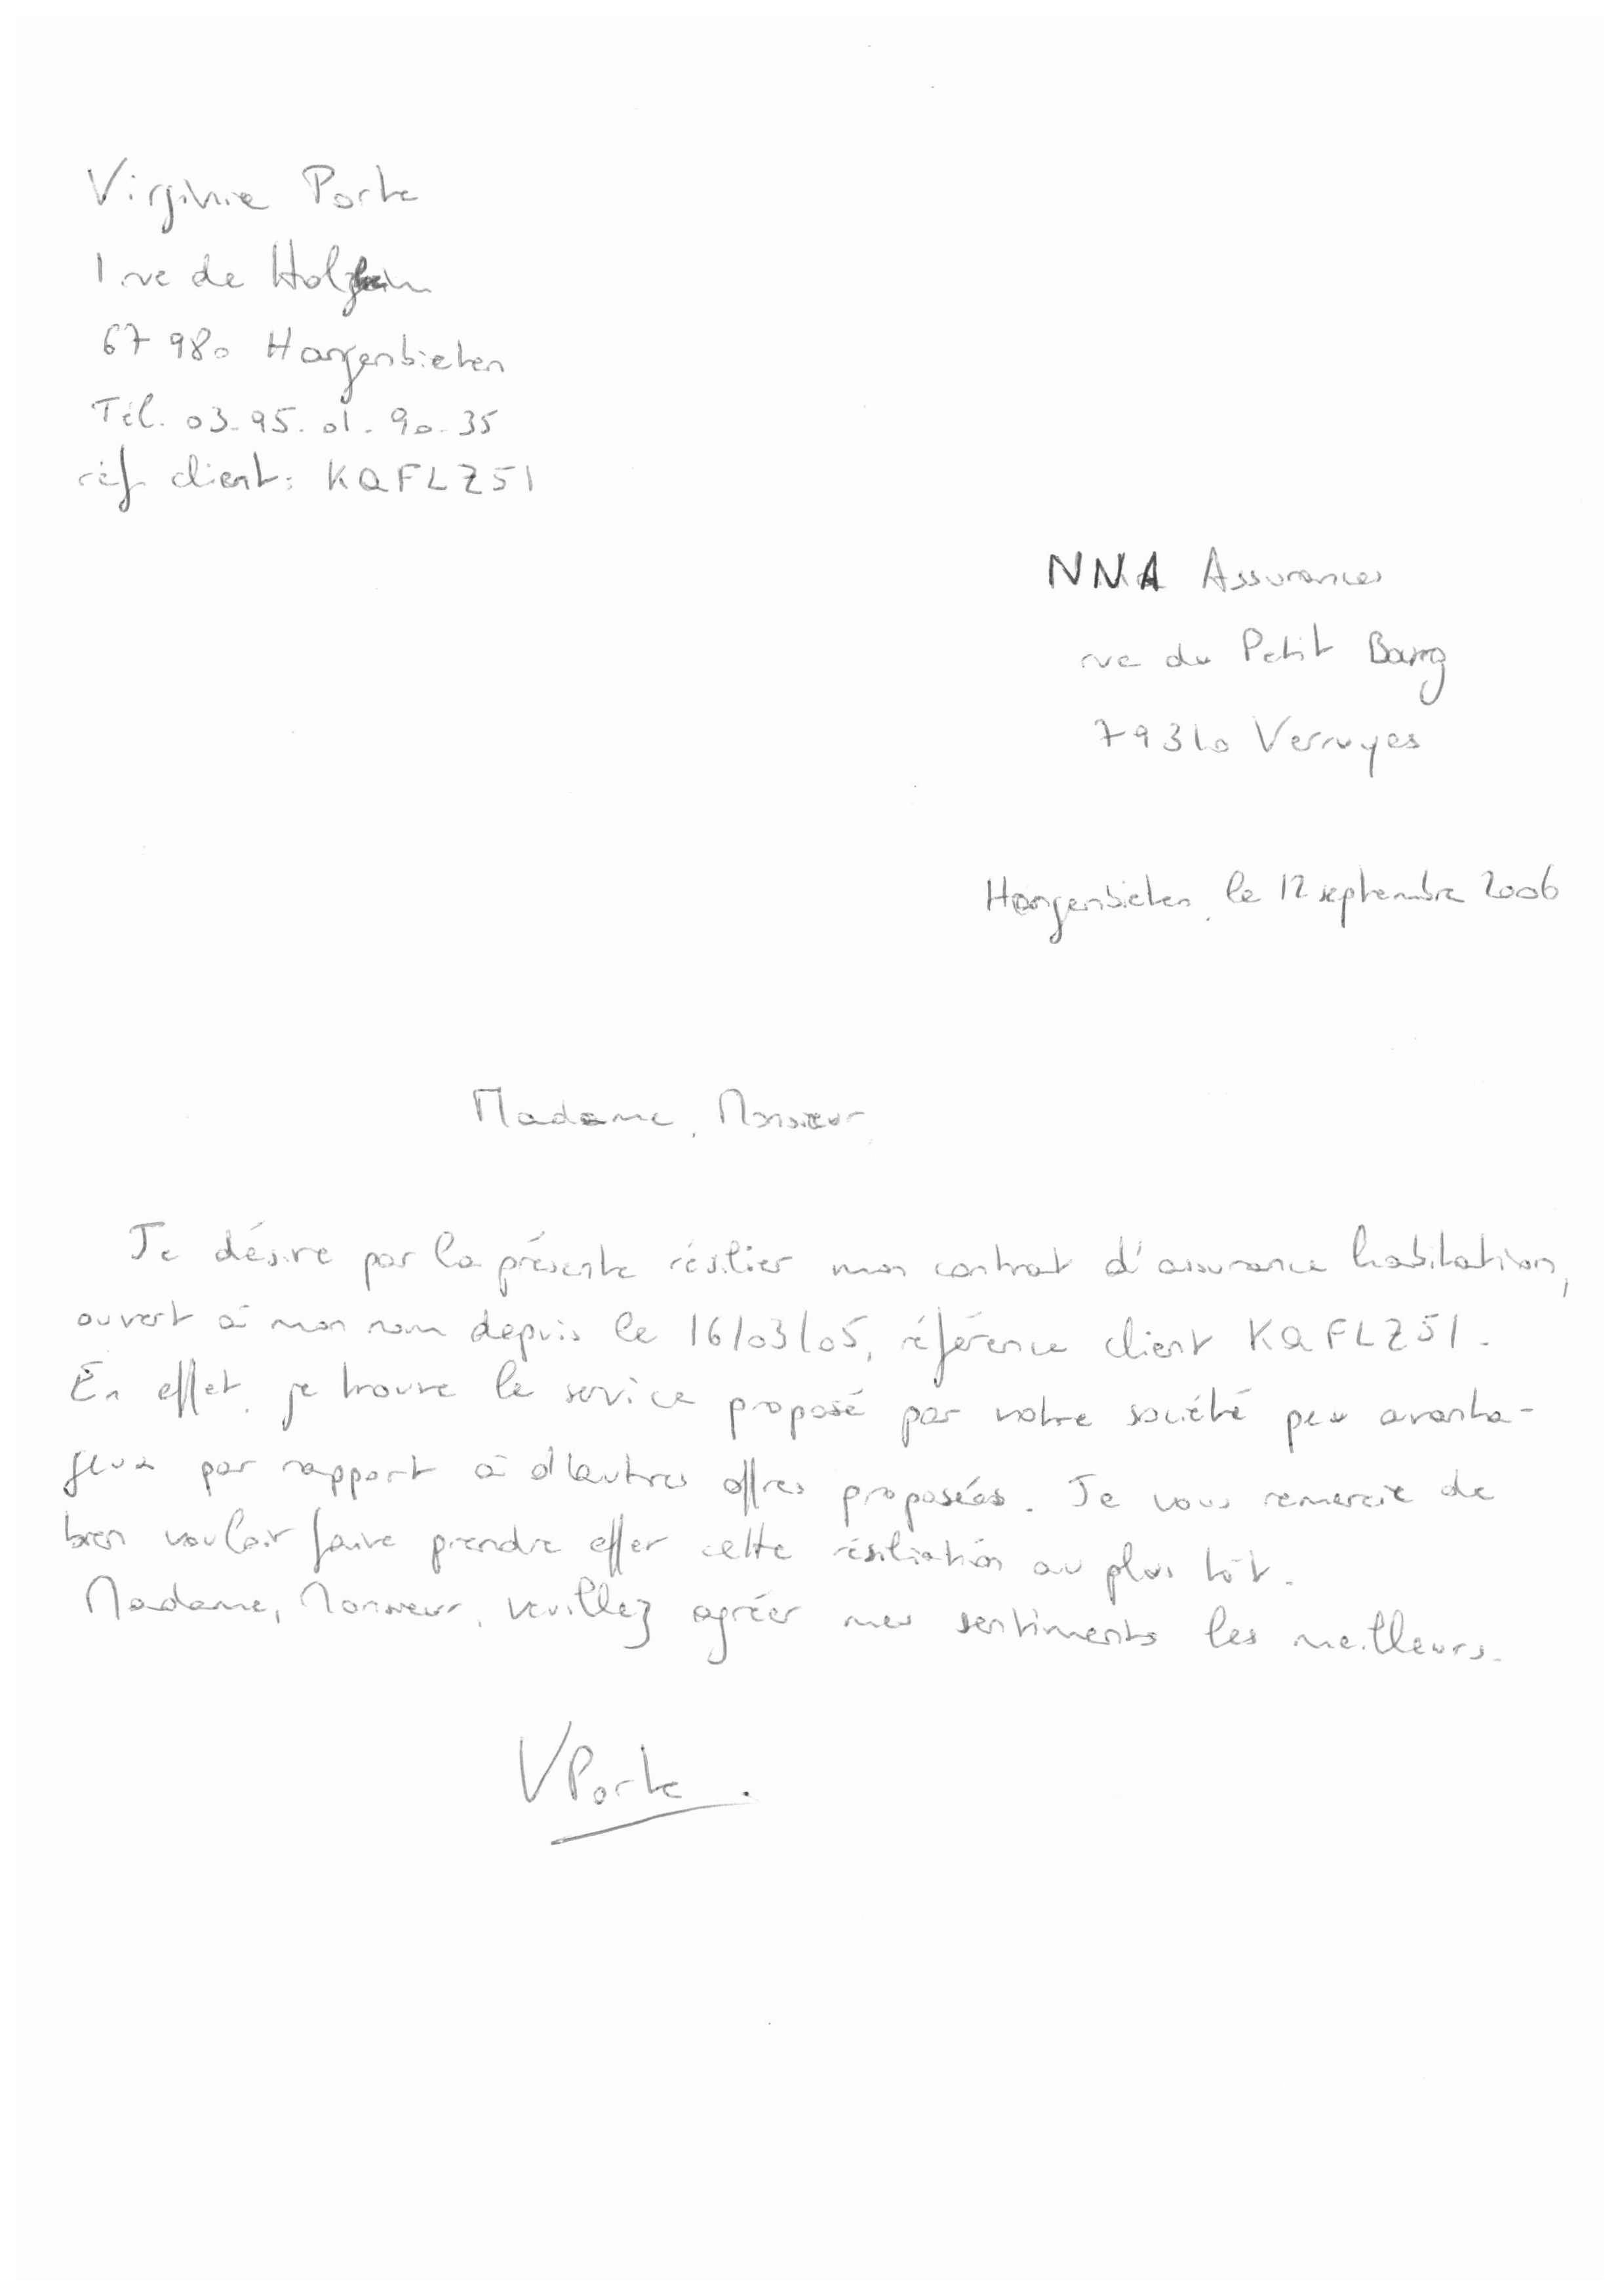 Virginie Porte
1 rue de
67980 Hangenbieten
Tél. 03.95.01.90.35
réf client: KQFLZ51
NNA Assurances
rue du Petit Bourg
79310 Verruyes
Hangenbieten, le 12 septembre 2006
Madame, Monsieur,
Je désire par la présente résilier mon contrat d'assurance habitation,
ouvert à mon nom depuis le 16/03/05, référence client KQFLZ51.
En effet, je trouve le service proposé par votre société peu avanta-
geux par rapport à d'autres offres proposées. Je vous remercie de
bien vouloir faire prendre effet cette résiliation au plus tôt.
Madame, Monsieur, veuillez agréer mes sentiments les meilleurs.
VPorte.